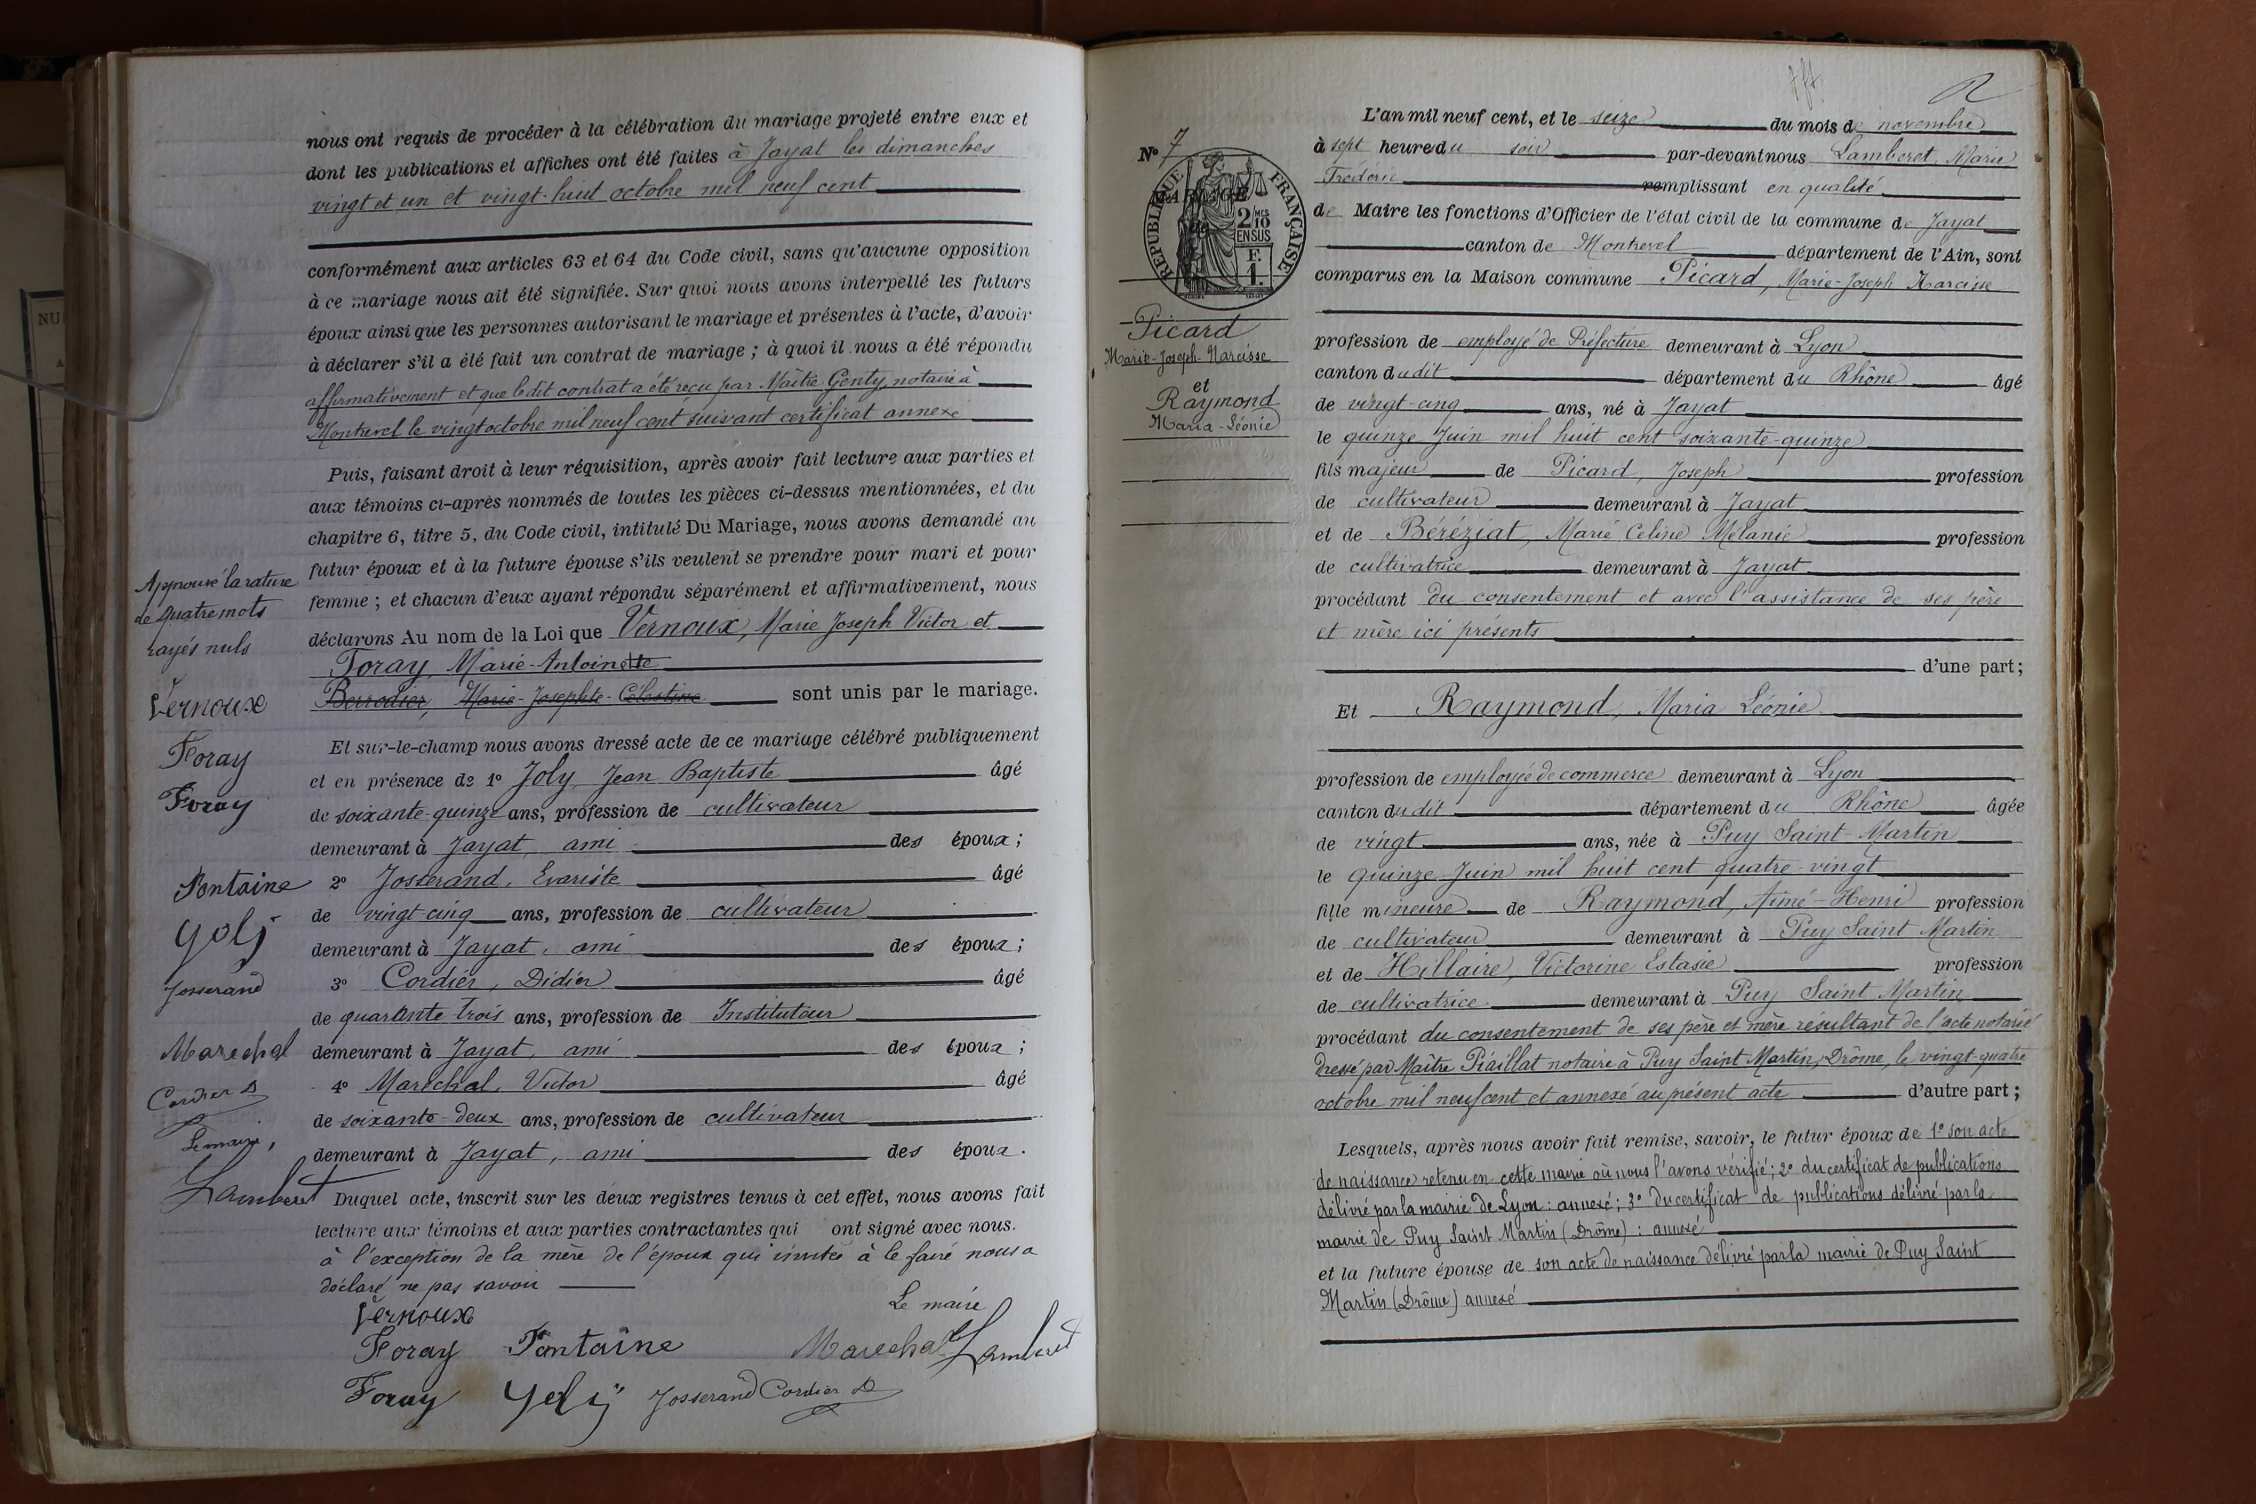 nous ont requis de procéder à la célébration du mariage projeté entre eux et
dont les publications et affiches ont été faites à Jayat les dimanches
vingt et un et vingt-huit octobre mil neuf cent
conformément aux articles 63 et 64 du Code civil, sans qu'aucune opposition
à ce mariage nous ait été signifiée. Sur quoi nous avons interpellé les futurs
époux ainsi que les personnes autorisant le mariage et présentes à l'acte, d'avoir
à déclarer s'il a élé fait un contrat de mariage ; à quoi il nous a été répondu
affirmativement et que le dit contrat a été reçu par Maître Genty, notaire à
Montrevel le vingt octobre mil neuf cent suivant certificat annexé
Puis, faisant droit à leur réquisition, après avoir fait lecture aux parties et
aux témoins ci-après nommés de toutes les pièces ci-dessus mentionnées, et du
chapitre 6, titre 5, du Code civil, intitulé Du Mariage, nous avons demandé au
futur époux et à la future épouse s'ils veulent se prendre pour mari et pour
femme ; et chacun d'eux ayant répondu séparément et affirmativement, nous
déclarons Au nom de la Loi que Vernoux, Marie Joseph Victor et
Foray, Marie-Antoinette
Berrodier, Marie-Josephte-Célestine sont unis par le mariage.
Approuvé la rature
de quatre mots
rayés nuls
Vernoux
Foray
Foray
Fontaine
Joly
Josserand
Marechal
Cordier D
Le maire,
Lamberet
Et sur-le-champ nous avons dressé acte de ce mariage célébré publiquement
et en présence de 1º Joly, Jean Baptiste âgé
de soixante-quinze ans, profession de cultivateur
demeurant à Jayat, ami des époux ;
2º Josserand, Evariste âgé
de vingt-cinq ans, profession de cultivateur
demeurant à Jayat, ami des époux ;
3º Cordier, Didier âgé
de quarante trois ans, profession de Instituteur
demeurant à Jayat, ami des époux ;
4º Maréchal, Victor âgé
de soixante-deux ans, profession de cultivateur
demeurant à Jayat, ami des époux.
Duquel acte, inscrit sur les deux registres tenus à cet effet, nous avons fait
lecture aux témoins et aux parties contractantes qui ont signé avec nous.
à l'exception de la mère de l'époux qui invitée à le faire nous a
déclaré ne pas savoir
Vernoux Le maire
Foray Fontaine Marechal Lamberet
Foray Joly Josserand Cordier D
Nº 7
MARIAGE
de
RÉPUBLIQUE FRANÇAISE
2/10 EN SUS
F. 1.
Picard
Marie-Joseph-Narcisse
et
Raymond
Maria-Léonie
L'an mil neuf cent, et le seize du mois de novembre
à sept heure du soir par-devant nous Lamberet, Marie
Frédéric remplissant en qualité
de Maire les fonctions d'Officier de l'état civil de la commune de Jayat
canton de Montrevel département de l'Ain, sont
comparus en la Maison commune Picard, Marie-Joseph Narcisse
profession de employé de Préfecture demeurant à Lyon
canton dudit département du Rhône âgé
de vingt-cinq ans, né à Jayat
le quinze Juin mil huit cent soixante-quinze
fils majeur de Picard, Joseph profession
de cultivateur demeurant à Jayat
et de Béréziat, Marie Celine Mélanie profession
de cultivatrice demeurant à Jayat
procédant du consentement et avec l'assistance de ses père
et mère ici présents
d'une part ;
Et Raymond, Maria Léonie
profession de employée de commerce demeurant à Lyon
canton dudit département du Rhône âgée
de vingt ans, née à Puy Saint-Martin
le quinze Juin mil huit cent quatre-vingt
fille mineure de Raymond, Aimé-Henri profession
de cultivateur demeurant à Puy Saint Martin
et de Hillaire, Victorine Estasie profession
de cultivatrice demeurant à Puy Saint Martin
procédant du consentement de ses père et mère résultant de l'acte notarié
dressé par Maître Piaillat notaire à Puy Saint Martin, Drôme, le vingt-quatre
octobre mil neuf cent et annexé au présent acte d'autre part ;
Lesquels, après nous avoir fait remise, savoir, le futur époux de 1º son acte
de naissance retenu en cette mairie où nous l'avons vérifié ; 2º du certificat de publications
délivré par la mairie de Lyon : annexé ; 3º du certificat de publications délivré par la
mairie de Puy Saint Martin (Drôme) : annexé
et la future épouse de son acte de naissance délivré par la mairie de Puy Saint
Martin (Drôme) annexé